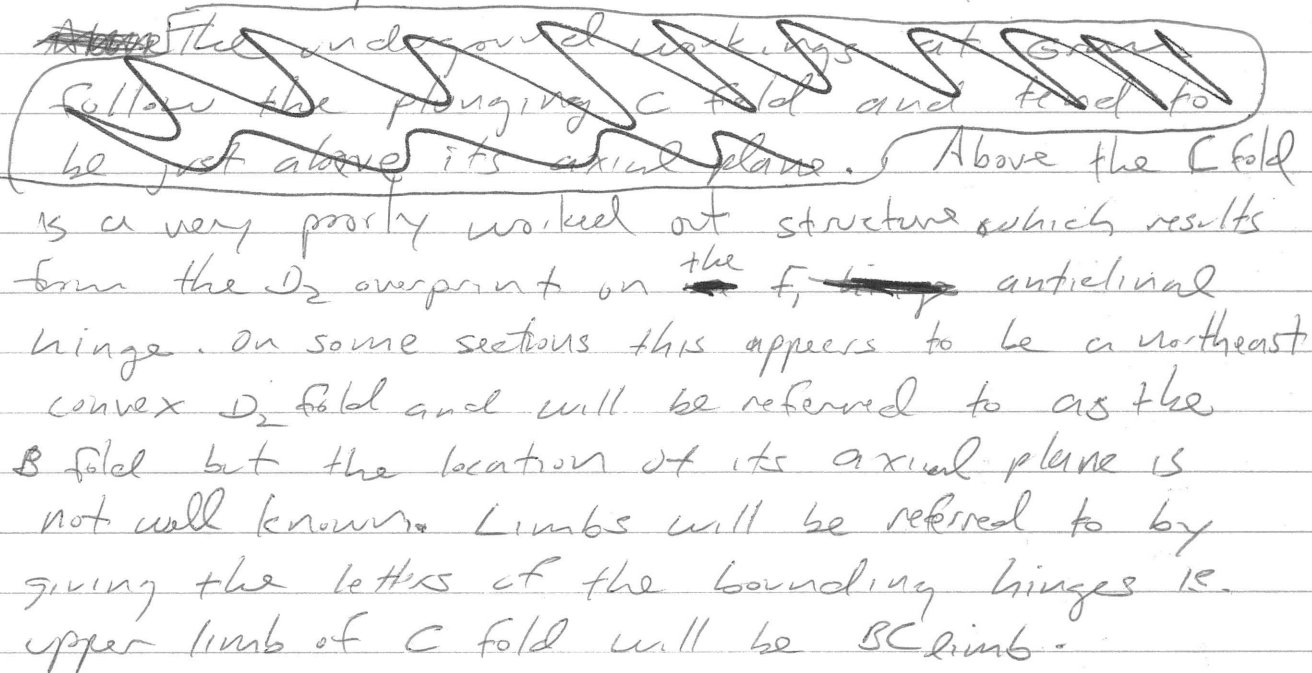 The underground workings at
follow the plunging C fold and tend to
be just above its axial plane. Above the C fold
is a very poorly worked out structure which results
form the D2 overprint on the F1 anticlinal
hinge. On some sections this appears to be a northeast
convex D2 fold and will be referred to as the
B fold but the location of its axial plane is
not well known. Limbs will be referred to by
giving the letters of the bounding hinges ie.
upper limb of C fold will be BC limb.